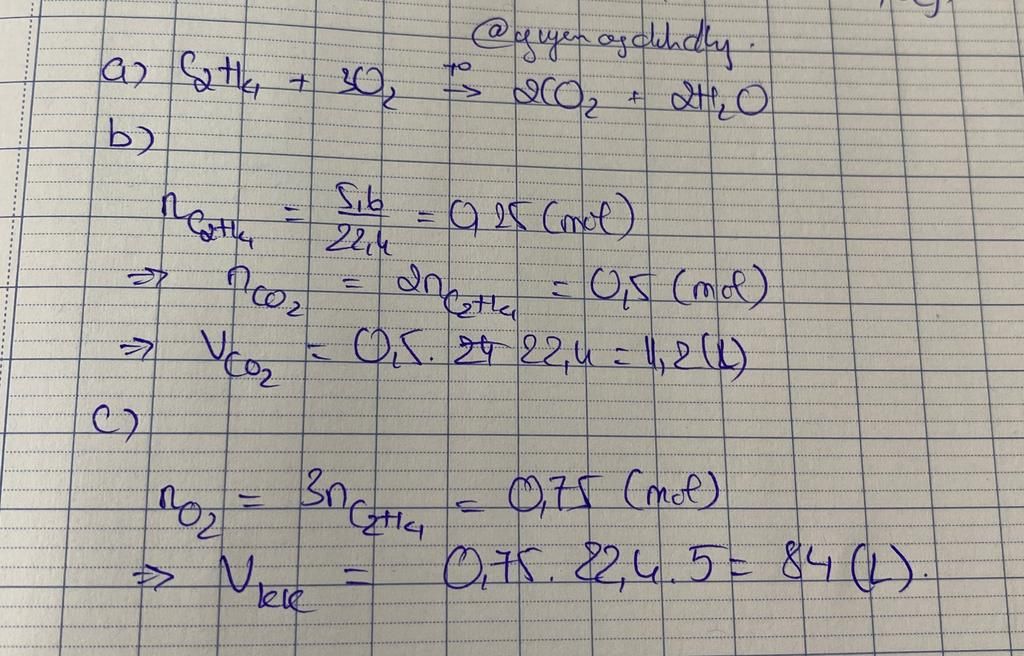 a) C₂H₄ + 3O₂ →(t°) 2CO₂ + 2H₂O
b)
n_C₂H₄ = 5,6/22,4 = 0,25 (mol)
⇒ n_CO₂ = 2n_C₂H₄ = 0,5 (mol)
⇒ V_CO₂ = 0,5. 22,4 = 11,2 (L)
c)
n_O₂ = 3n_C₂H₄ = 0,75 (mol)
⇒ V_kk = 0,75. 22,4. 5 = 84 (L).